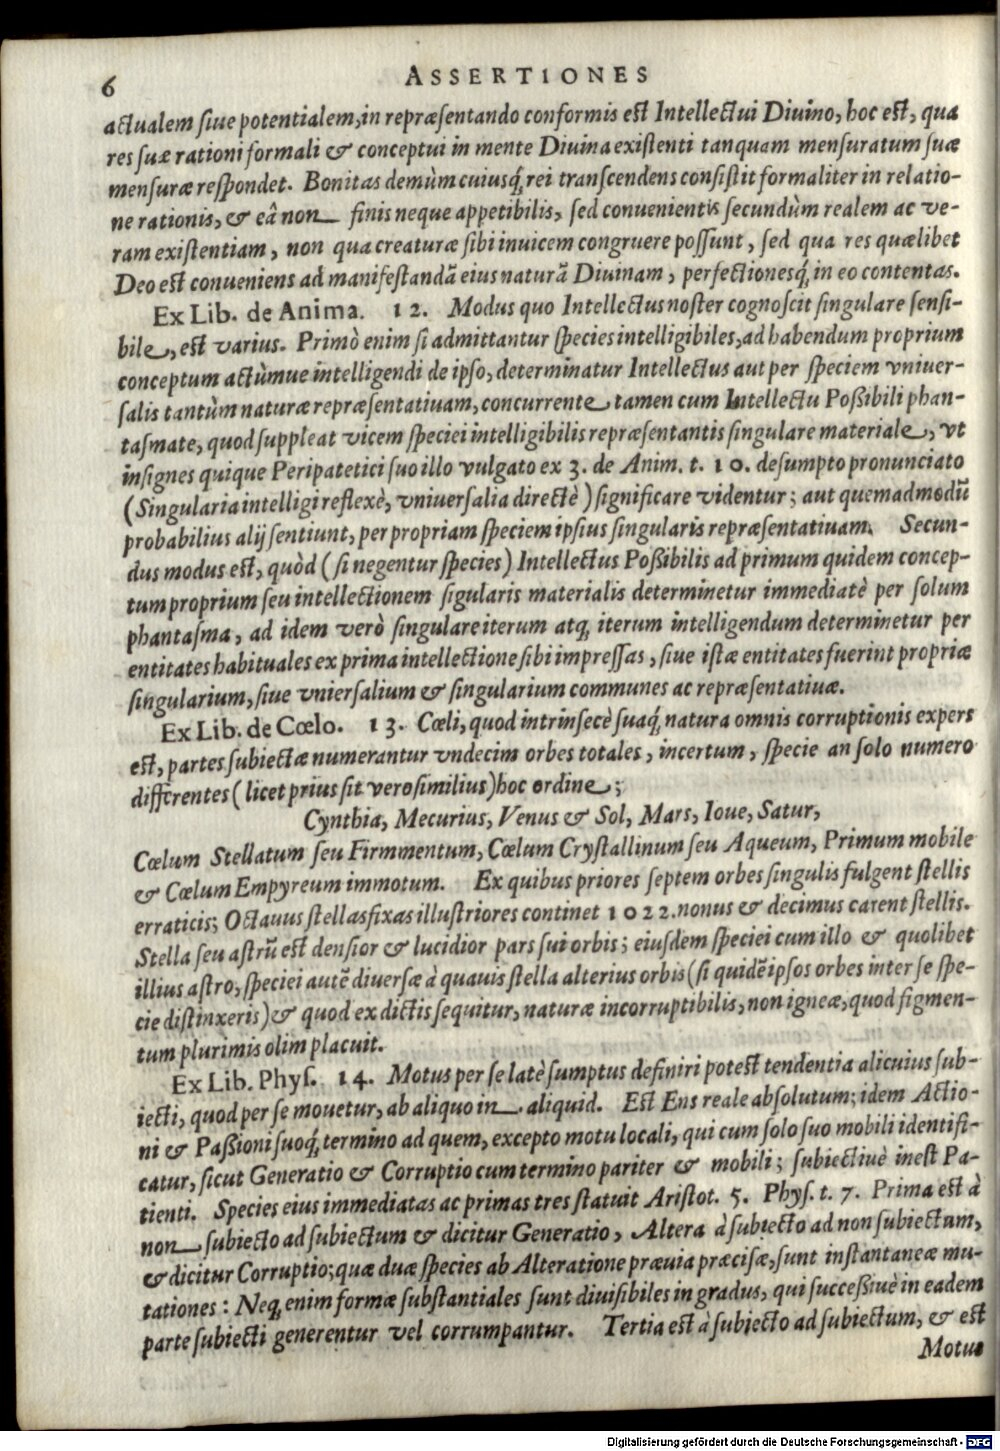 6 ASSERTIONES
actualem siue potentialem, in repræsentando conformis est Intellectui Diuino, hoc est, qua
res suæ rationi formali & conceptui in mente Diuina existenti tanquam mensuratum suæ
mensuræ respondet. Bonitas demùm cuiusq́; rei transcendens consistit formaliter in relatio-
ne rationis, & eâ non finis neque appetibilis, sed conuenientis secundùm realem ac ve-
ram existentiam, non qua creaturæ sibi inuicem congruere possunt, sed qua res quælibet
Deo est conueniens ad manifestandã eius naturã Diuinam, perfectionesq́; in eo contentas.
Ex Lib. de Anima. 12. Modus quo Intellectus noster cognoscit singulare sensi-
bile, est varius. Primò enim si admittantur species intelligibiles, ad habendum proprium
conceptum actùmue intelligendi de ipso, determinatur Intellectus aut per speciem vniuer-
salis tantùm naturæ repræsentatiuam, concurrente tamen cum Intellectu Possibili phan-
tasmate, quod suppleat vicem speciei intelligibilis repræsentantis singulare materiale, vt
insignes quique Peripatetici suo illo vulgato ex 3. de Anim. t. 10. desumpto pronunciato
(Singularia intelligi reflexè, vniuersalia directè) significare videntur; aut quemadmodũ
probabilius alij sentiunt, per propriam speciem ipsius singularis repræsentatiuam. Secun-
dus modus est, quòd (si negentur species) Intellectus Possibilis ad primum quidem concep-
tum proprium seu intellectionem sigularis materialis determinetur immediatè per solum
phantasma, ad idem verò singulare iterum atq; iterum intelligendum determinetur per
entitates habituales ex prima intellectione sibi impressas, siue istæ entitates fuerint propriæ
singularium, siue vniersalium & singularium communes ac repræsentatiuæ.
Ex Lib. de Cœlo. 13. Cœli, quod intrinsecè suaq́; natura omnis corruptionis expers
est, partes subiectæ numerantur vndecim orbes totales, incertum, specie an solo numero
differentes (licet prius sit verosimilius) hoc ordine;
Cynthia, Mecurius, Venus & Sol, Mars, Ioue, Satur,
Cœlum Stellatum seu Firmmentum, Cœlum Crystallinum seu Aqueum, Primum mobile
& Cœlum Empyreum immotum. Ex quibus priores septem orbes singulis fulgent stellis
erraticis; Octauus stellas fixas illustriores continet 1022. nonus & decimus carent stellis.
Stella seu astrũ est densior & lucidior pars sui orbis; eiusdem speciei cum illo & quolibet
illius astro, speciei autẽ diuersæ à quauis stella alterius orbis (si quidẽ ipsos orbes inter se spe-
cie distinxeris) & quod ex dictis sequitur, naturæ incorruptibilis, non igneæ, quod figmen-
tum plurimis olim placuit.
Ex Lib. Phys. 14. Motus per se latè sumptus definiri potest tendentia alicuius sub-
iecti, quod per se mouetur, ab aliquo in aliquid. Est Ens reale absolutum; idem Actio-
ni & Passioni suoq́; termino ad quem, excepto motu locali, qui cum solo suo mobili identifi-
catur, sicut Generatio & Corruptio cum termino pariter & mobili; subiectiuè inest Pa-
tienti. Species eius immediatas ac primas tres statuit Aristot. 5. Phys. t. 7. Prima est à
non subiecto ad subiectum & dicitur Generatio, Altera à subiecto ad non subiectum,
& dicitur Corruptio; quæ duæ species ab Alteratione præuia præcisæ, sunt instantaneæ mu-
tationes: Neq; enim formæ substantiales sunt diuisibiles in gradus, qui successiuè in eadem
parte subiecti generentur vel corrumpantur. Tertia est à subiecto ad subiectum, & est
Motus
Digitalisierung gefördert durch die Deutsche Forschungsgemeinschaft - DFG